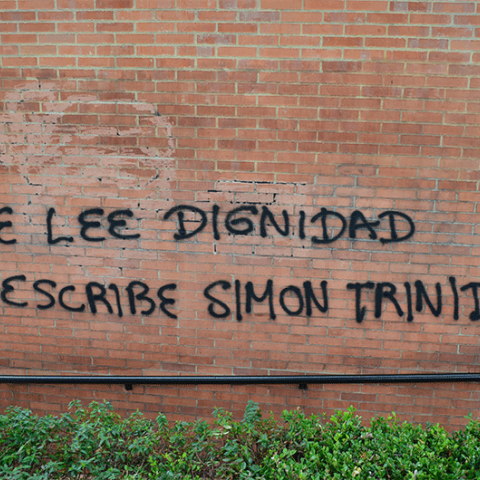 E LEE DIGNIDAD
ESCRIBE SIMON TRINI